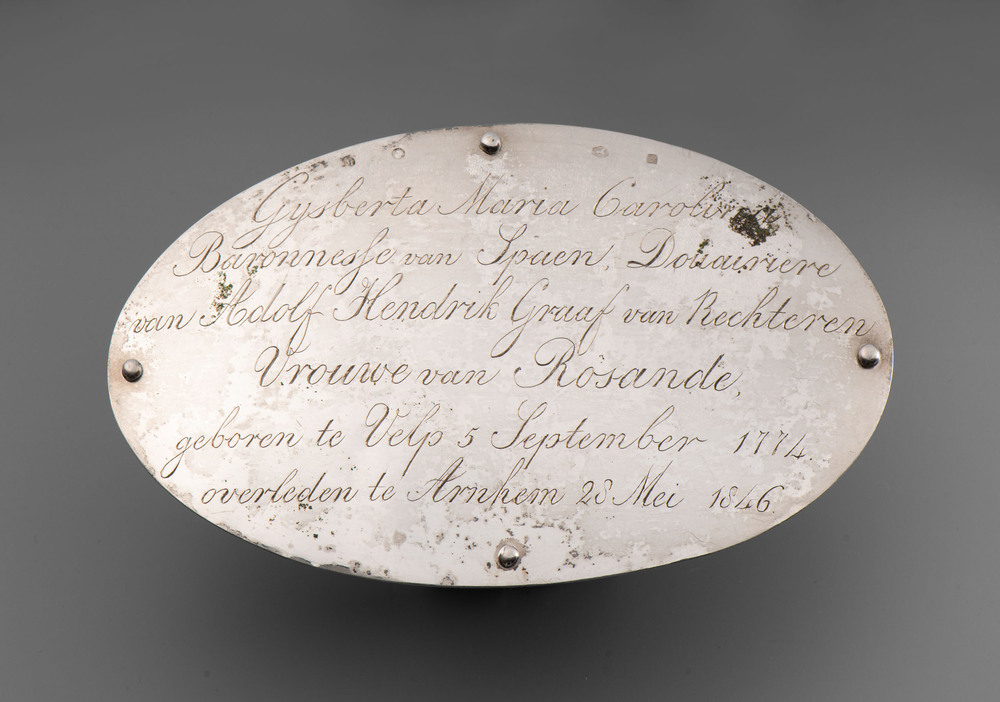 Gysberta Maria Carolina
Baronnesse van Spaen, Douairiere
van Adolf Hendrik Graaf van Rechteren
Vrouwe van Rosande,
geboren te Velp 5 September 1774.
overleden te Arnhem 28 Mei 1846